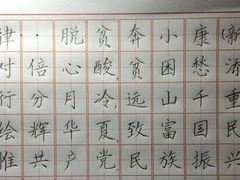 律·脱贫奔小康(新
对倍心酸,贫困愁
行分月冷,远山千重
绘辉华夏,致富国民
惟共产党,民族振兴